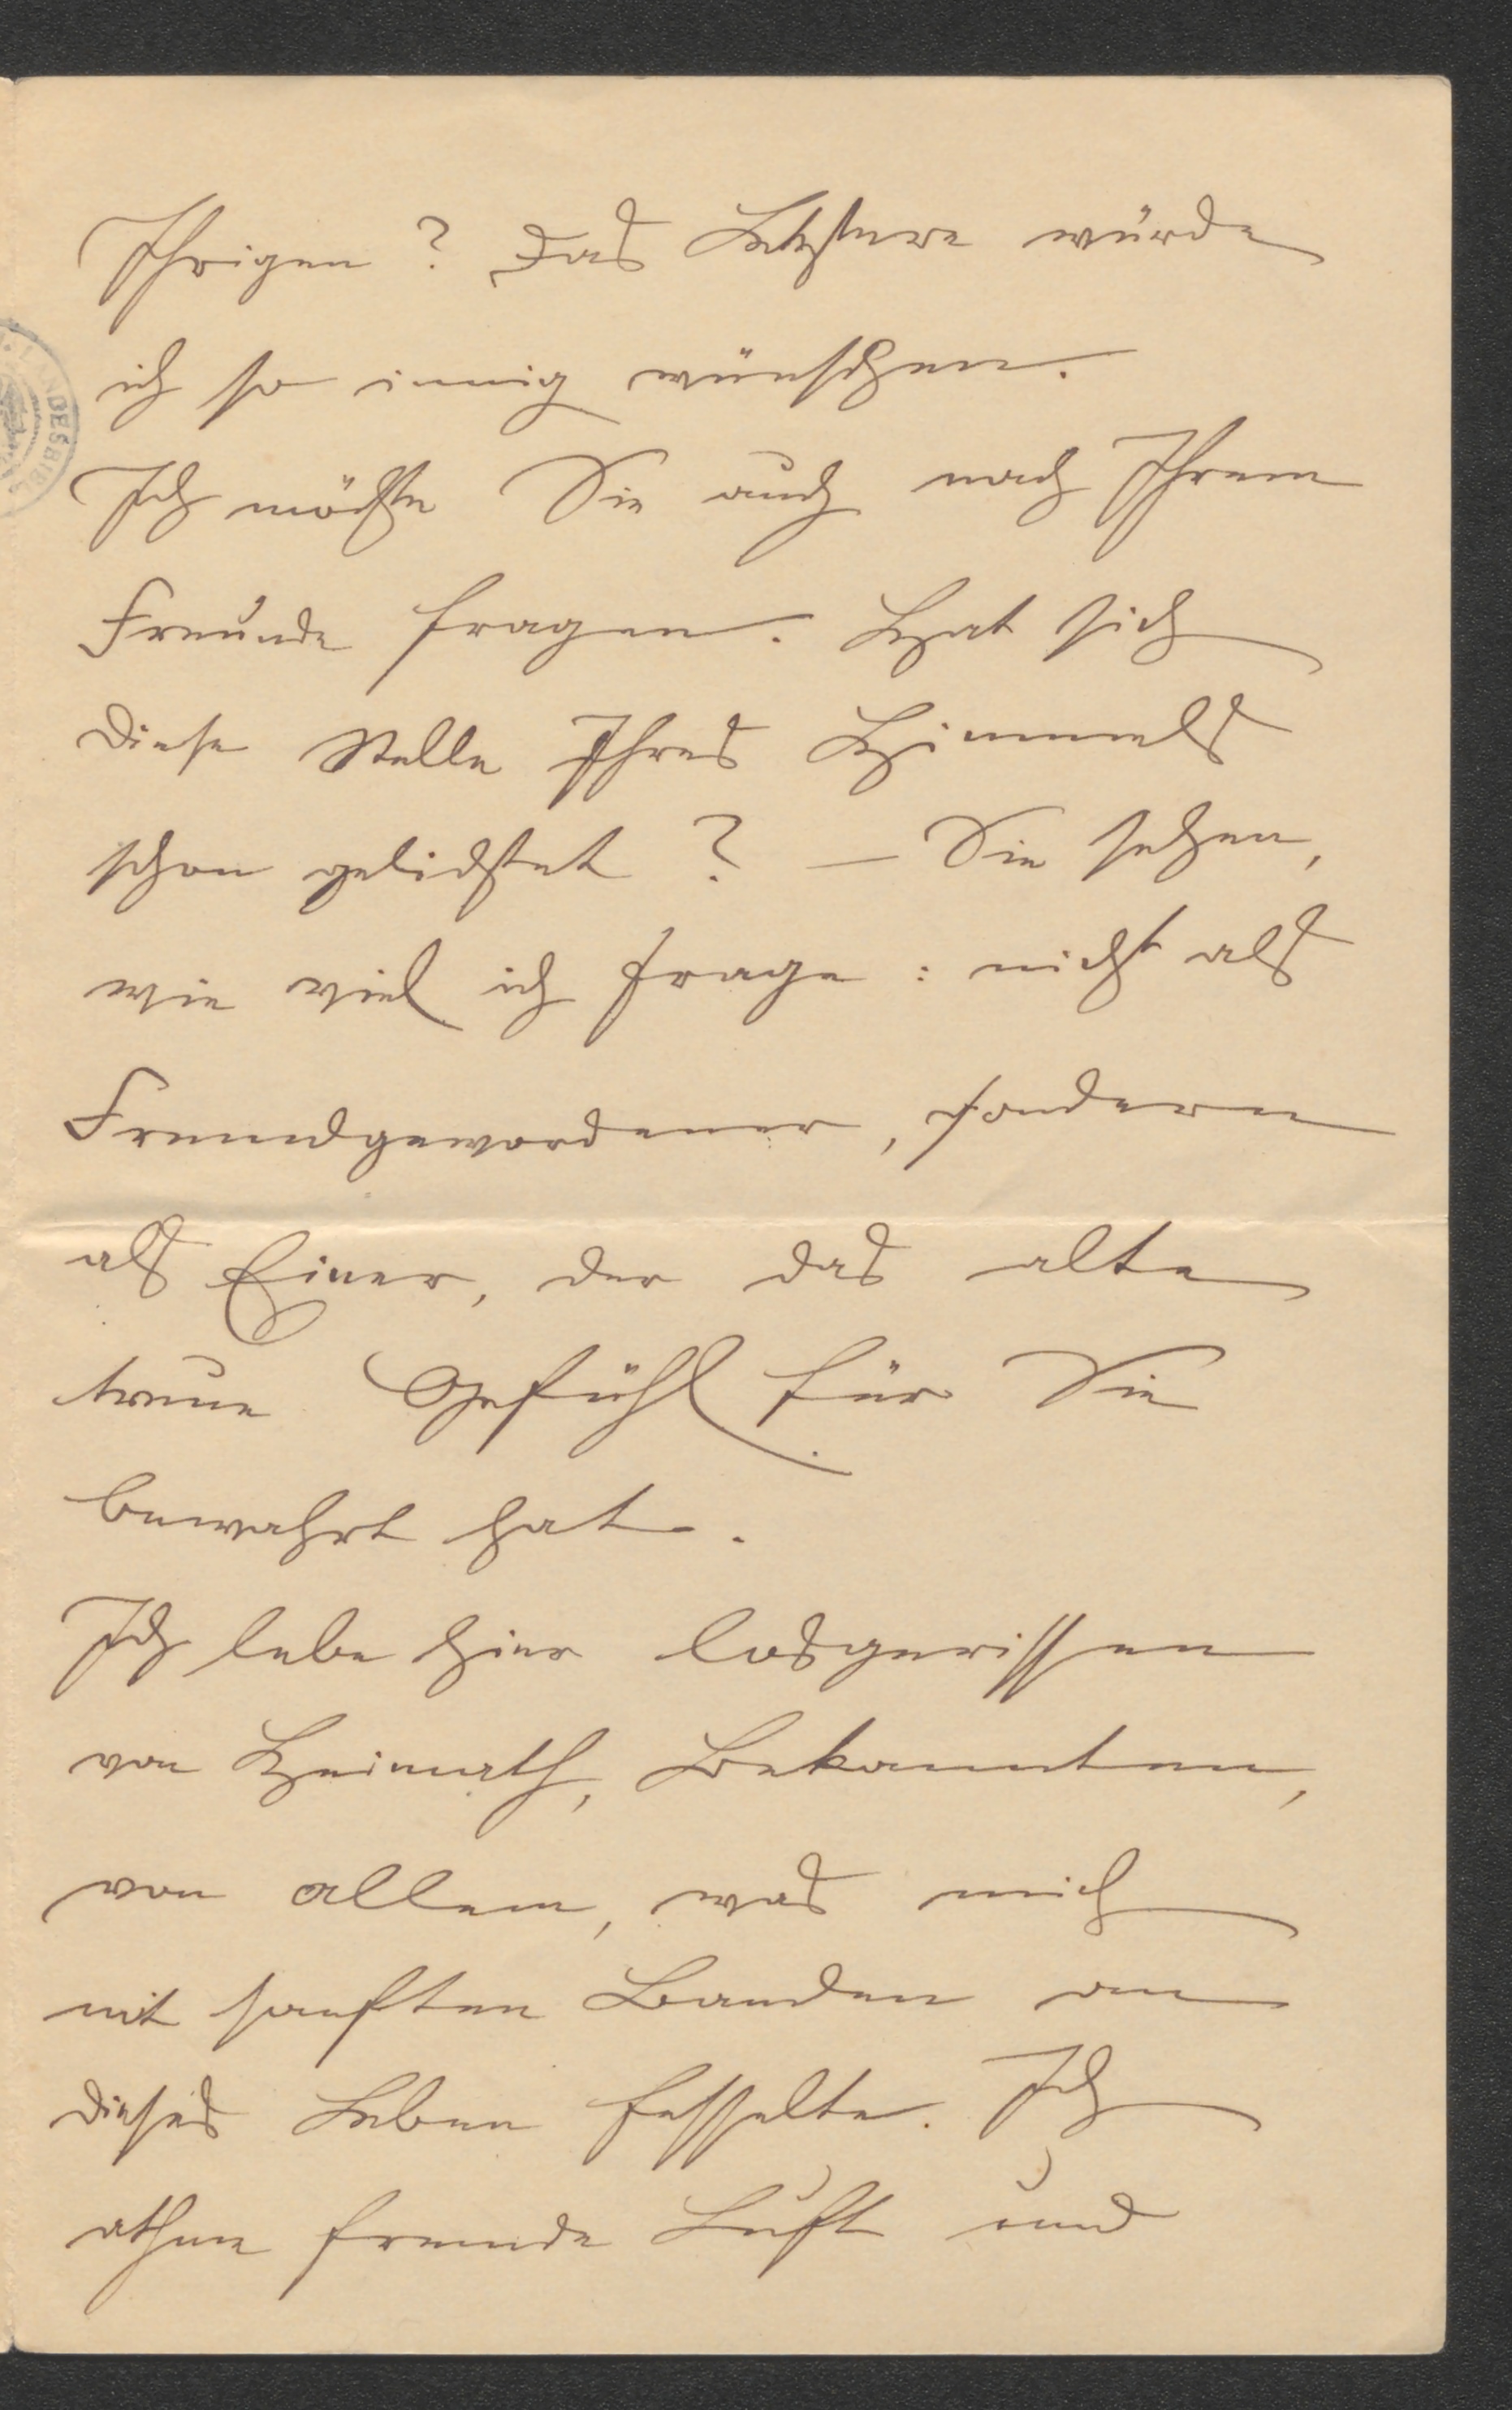 Ihrigen? Das Letztere würde
ich so innig wünschen.
Ich möchte Sie auch nach Ihrem
Freunde fragen. Hat sich
diese Stelle Ihres Himmels
schon gelichtet? — Sie sehen,
wie viel ich frage: nicht als
Fremdgewordener, sondern
als Einer, der das alte
treue Gefühl für Sie
bewahrt hat.
Ich lebe hier losgerissen
von Heimath, Bekannten,
von allem, was mich
mit sanften Banden an
dieses Leben fesselte. Ich
athme fremde Luft und